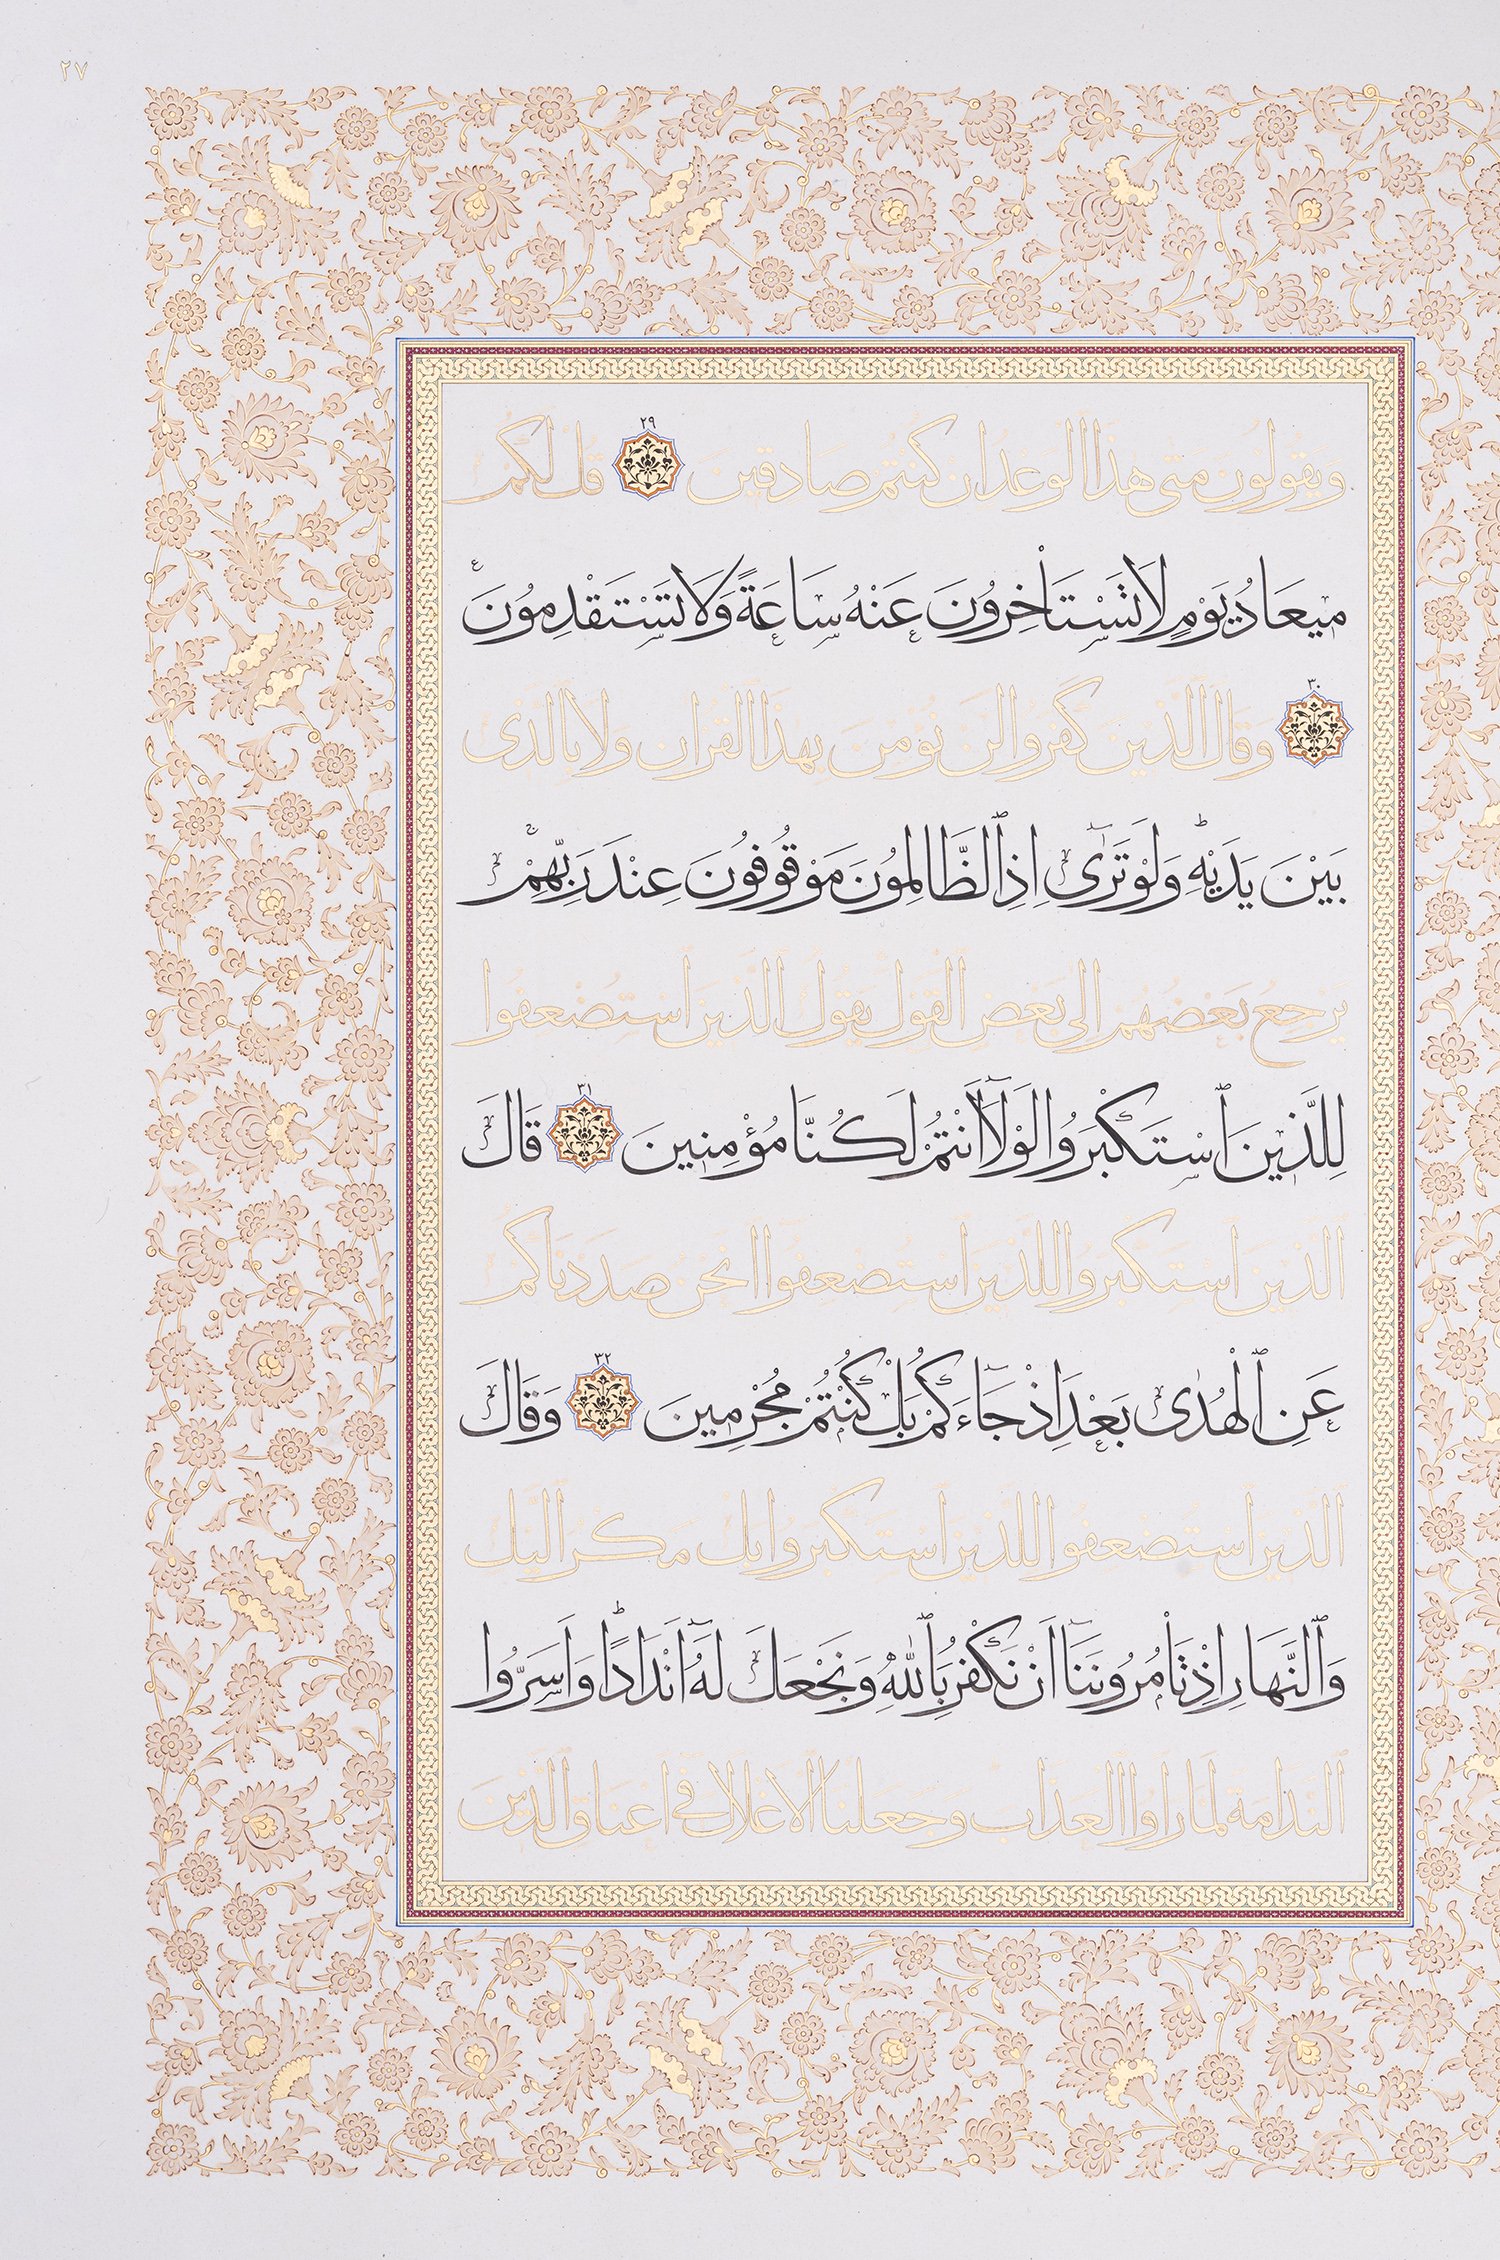 ٢٧
ويقولون متى هذا الوعد ان كنتم صادقين ٢٩ قل لكم
مٖيعَادُ يَوْمٍ لَا تَسْتَأْخِرُونَ عَنْهُ سَاعَةً وَلَا تَسْتَقْدِمُونَ
٣٠ وقال الذين كفروا لن نؤمن بهذا القران ولا بالذى
بَيْنَ يَدَيْهِ وَلَوْ تَرٰٓى اِذِ ٱلظَّالِمُونَ مَوْقُوفُونَ عِنْدَ رَبِّهِمْ
يرجع بعضهم الى بعض القول يقول الذين استضعفوا
لِلَّذٖينَ ٱسْتَكْبَرُوا لَوْلَٓا اَنْتُمْ لَكُنَّا مُؤْمِنٖينَ ٣١ قَالَ
الذين استكبروا للذين استضعفوا انحن صددناكم
عَنِ ٱلْهُدٰى بَعْدَ اِذْ جَٓاءَكُمْ بَلْ كُنْتُمْ مُجْرِمٖينَ ٣٢ وَقَالَ
الذين استضعفوا للذين استكبروا بل مكر اليل
وَٱلنَّهَارِ اِذْ تَأْمُرُونَنَٓا اَنْ نَكْفُرَ بِٱللّٰهِ وَنَجْعَلَ لَهُٓ اَنْدَادًا وَاَسَرُّوا
الندامة لما راوا العذاب وجعلنا الاغلال فى اعناق الذين